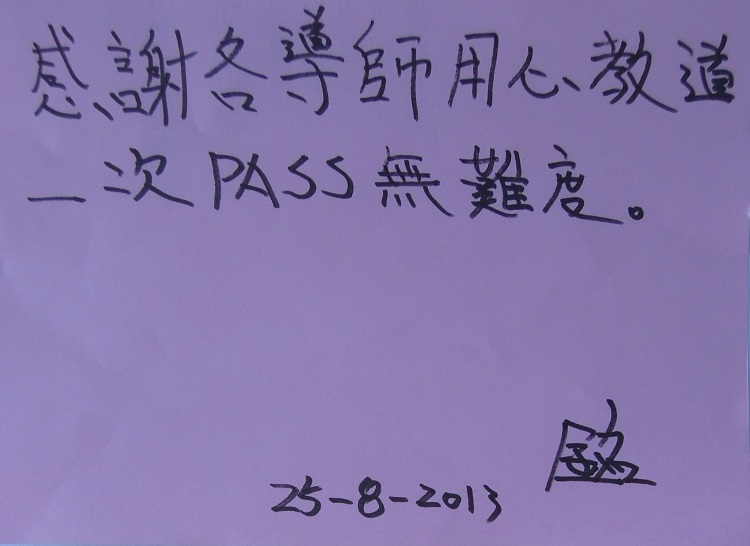 感謝各導師用心教道
一次PASS無難度。
25-8-2013